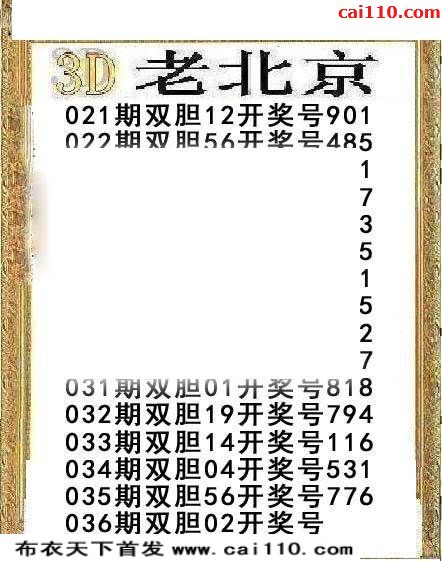 cai110.com
3D 老北京
021期双胆12开奖号901
022期双胆56开奖号485
1
7
3
5
1
5
2
7
031期双胆01开奖号818
032期双胆19开奖号794
033期双胆14开奖号116
034期双胆04开奖号531
035期双胆56开奖号776
036期双胆02开奖号
布衣天下首发 www.cai110.com